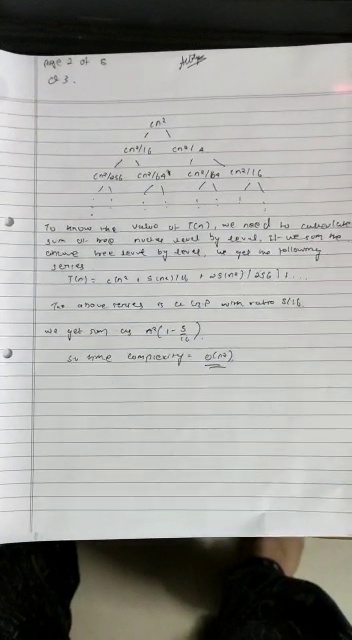 page 2 of 6
Q 3.
cn²
cn²/16 cn²/4
cn²/256 cn²/64 cn²/64 cn²/16
To know the value of T(n), we need to calculate
sum of tree nodes level by level. If we sum the
above tree level by level, we get the following
series
T(n) = c(n² + 5(n²)/16 + 25(n²)/256) + ...
The above series is a G.P with ratio 5/16
we get sum as n²(1 - 5/16)
so time complexity = O(n²)